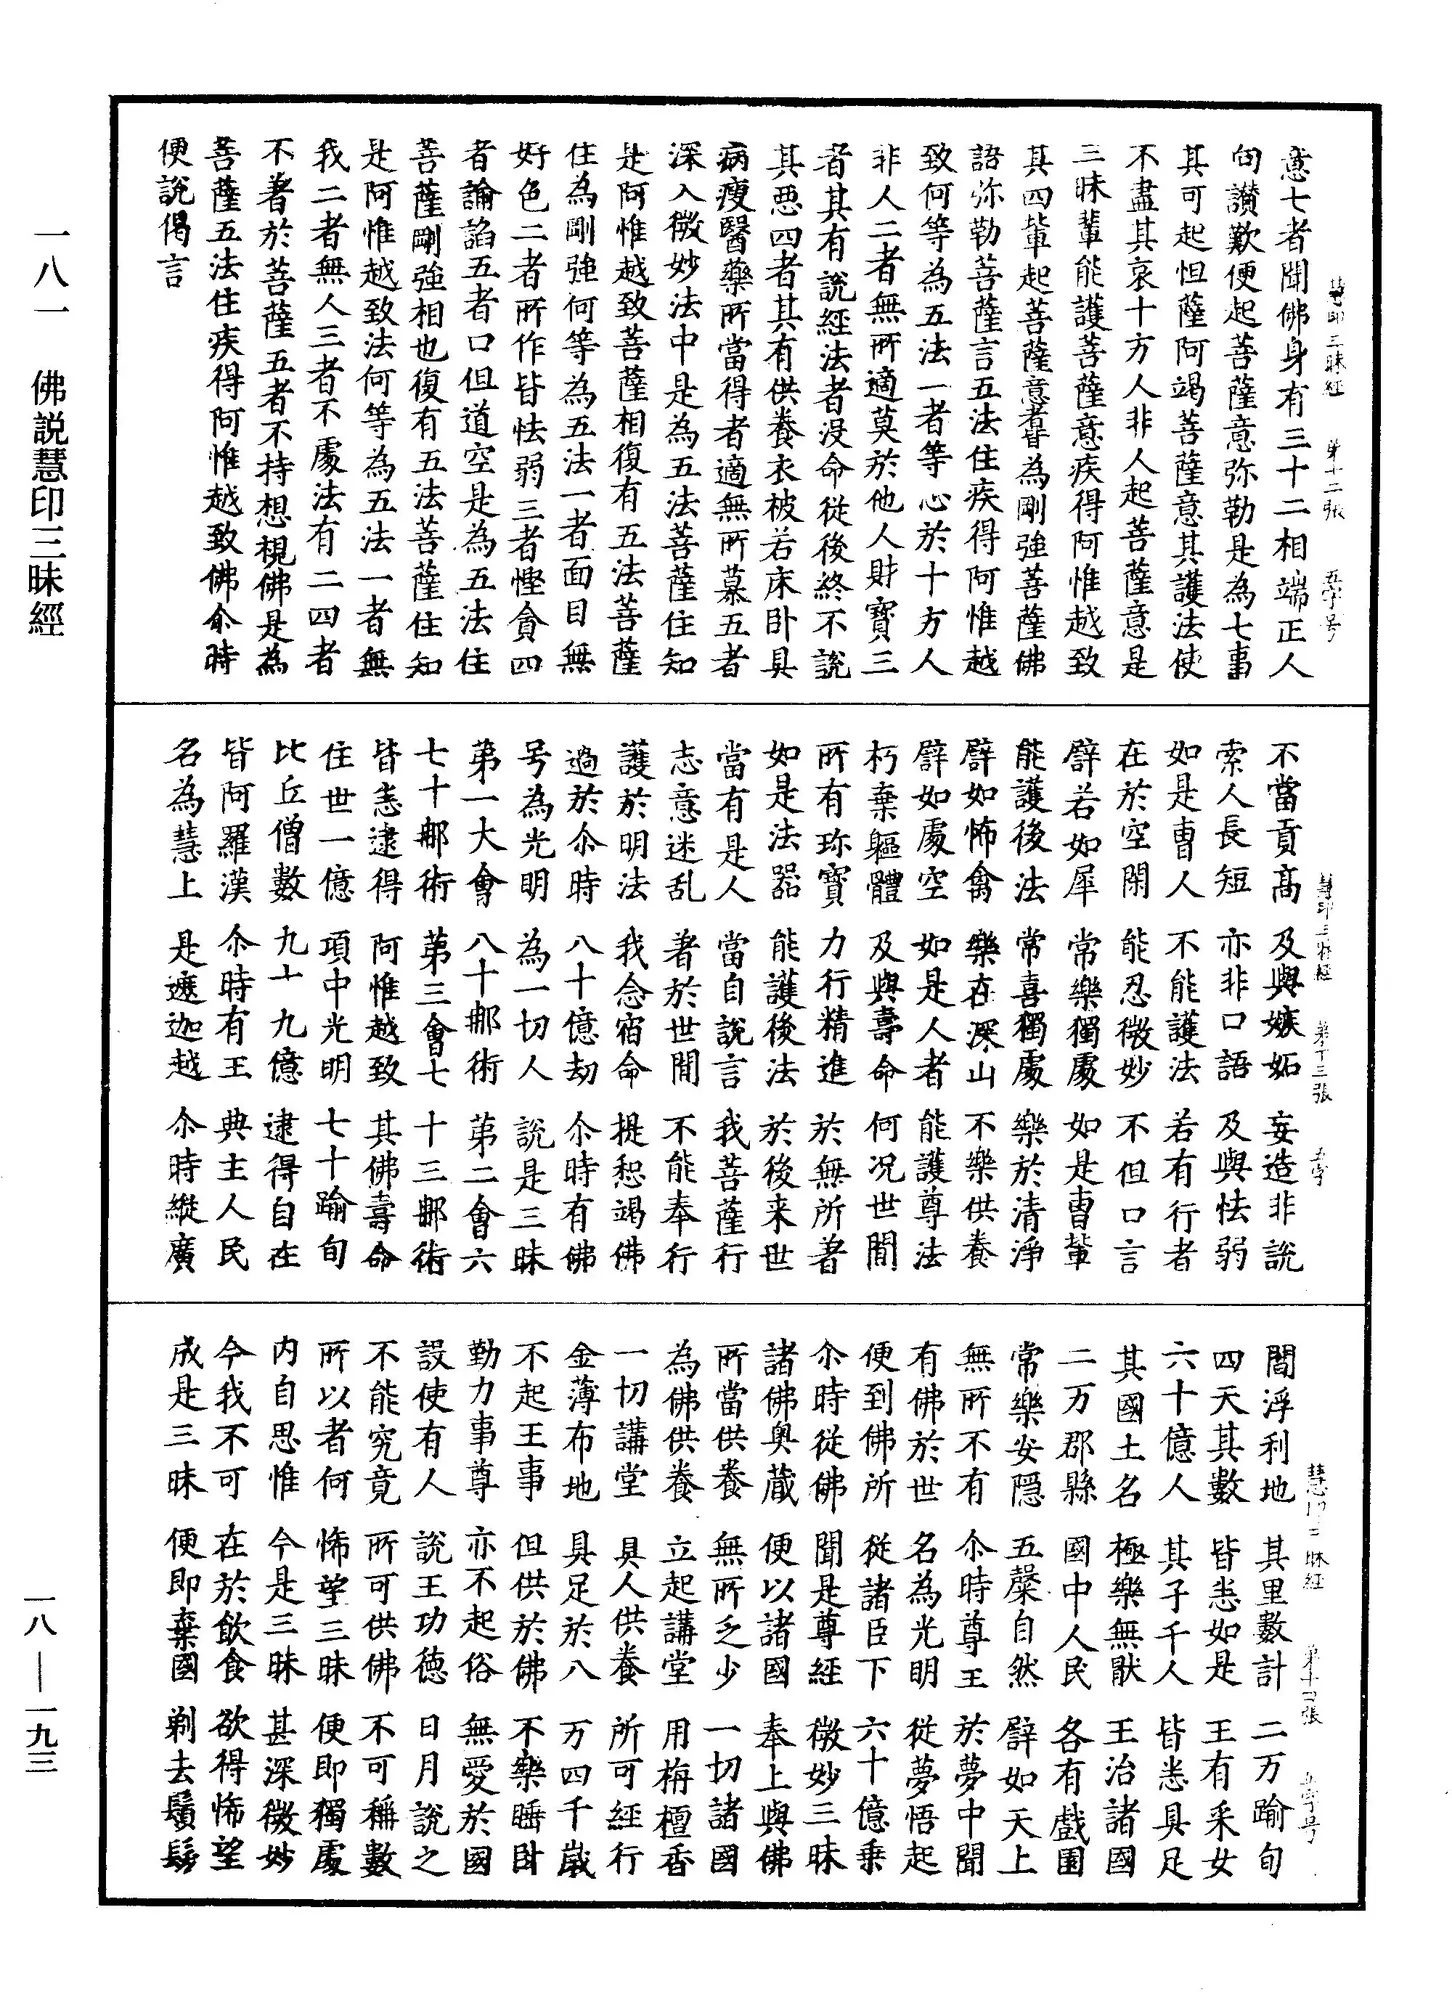 意七者聞佛身有三十二相端正人
向讚歎便起菩薩意弥勒是為七事
其可起怛薩阿竭菩薩意其護法使
不盡其哀十方人非人起菩薩意是
三昧輩能護菩薩意疾得阿惟越致
其四輩起菩薩意者皆為剛強菩薩佛
語弥勒菩薩言五法住疾得阿惟越
致何等為五法一者等心於十方人
非人二者無所適莫於他人財寶三
者其有說經法者沒命從後終不說
其惡四者其有供養衣被若床卧具
病瘦醫藥所當得者適無所慕五者
深入微妙法中是為五法菩薩住知
是阿惟越致菩薩相復有五法菩薩
住為剛強何等為五法一者面目無
好色二者所作皆怯弱三者慳貪四
者諭諂五者口但道空是為五法住
菩薩剛強相也復有五法菩薩住知
是阿惟越致法何等為五法一者無
我二者無人三者不處法有二四者
不著於菩薩五者不持想視佛是為
菩薩五法住疾得阿惟越致佛尒時
便說偈言
不當貢高 及與嫉妬 妄造非說
索人長短 亦非口語 及與怯弱
如是曹人 不能護法 若有行者
在於空閑 能忍微妙 不但口言
譬若如犀 常樂獨處 如是曹輩
能護後法 常喜獨處 樂於清淨
譬如怖禽 樂在深山 不樂供養
譬如處空 如是人者 能護尊法
朽棄軀體 及與壽命 何况世間
所有珎寶 力行精進 於無所著
如是法器 能護後法 於後来世
當有是人 當自說言 我菩薩行
志意迷乱 著於世間 不能奉行
護於明法 我念宿命 提惒竭佛
過於尒時 八十億劫 尒時有佛
号為光明 為一切人 說是三昧
第一大會 八十郍術 第二會六
七十郍術 第三會七 十三郍術
皆悉逮得 阿惟越致 其佛壽命
住世一億 項中光明 七十踰旬
比丘僧數 九十九億 逮得自在
皆阿羅漢 尒時有王 典主人民
名為慧上 是遮迦越 尒時縱廣
閻浮利地 其里數計 二万踰旬
四天其數 皆悉如是 王有采女
六十億人 其子千人 皆悉具足
其國土名 極樂無猒 王治諸國
二万郡縣 國中人民 各有戲園
常樂安隱 五槃自然 譬如天上
無所不有 尒時尊王 於夢中聞
有佛於世 名為光明 從夢悟起
便到佛所 從諸臣下 六十億乗
尒時從佛 聞是尊經 微妙三昧
諸佛奥蔵 便以諸國 奉上與佛
所當供養 無所乏少 一切諸國
為佛供養 立起講堂 用栴檀香
一切講堂 具人供養 所可經行
金薄布地 具足於八 万四千歲
不起王事 但供於佛 不樂睡卧
勤力事尊 亦不起俗 無愛於國
設使有人 說王功德 日月說之
不能究竟 所可供佛 不可稱數
所以者何 悕望三昧 便即獨處
內自思惟 今是三昧 甚深微妙
今我不可 在於飲食 欲得悕望
成是三昧 便即棄國 剃去鬚髮
慧印三昧經 第十二張 五字号
慧印三昧經 第十三張 五字
慧印三昧經 第十四張 五字号
一八一 佛説慧印三昧經
一八——一九三